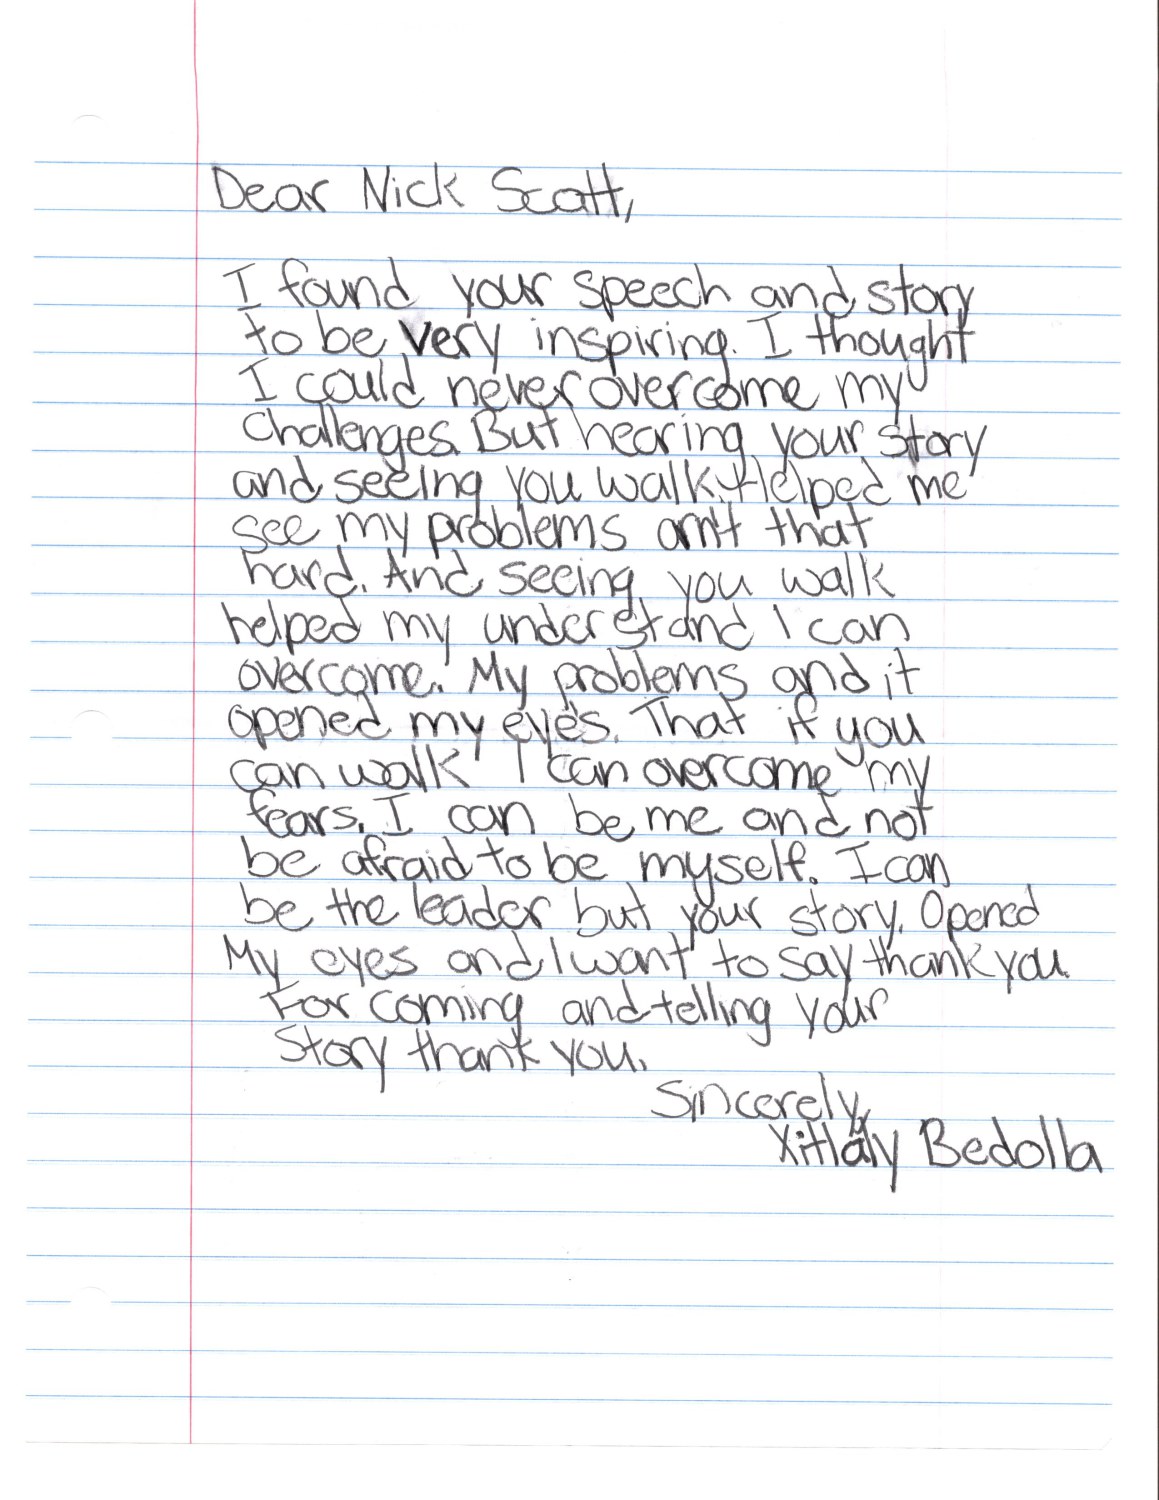 Dear Nick Scott,
I found your speech and story
to be very inspiring. I thought
I could never overcome my
Challenges. But hearing your story
and seeing you walk. Helped me
see my problems arn't that
hard. And seeing you walk
helped my understand I can
overcome. My problems and it
opened my eyes. That if you
can walk I can overcome my
fears. I can be me and not
be afraid to be myself. I can
be the leader but your story. Opened
My eyes and I want to say thank you.
For coming and telling your
Story thank you.
Sincerely,
Xitlaly Bedolla